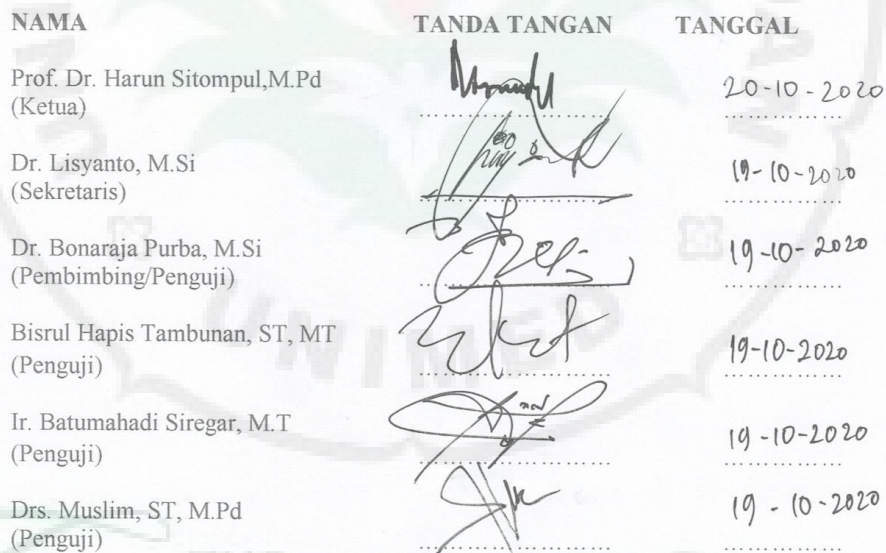 NAMA TANDA TANGAN TANGGAL
Prof. Dr. Harun Sitompul,M.Pd
(Ketua) 20-10-2020
Dr. Lisyanto, M.Si
(Sekretaris) 19-10-2020
Dr. Bonaraja Purba, M.Si
(Pembimbing/Penguji) 19-10-2020
Bisrul Hapis Tambunan, ST, MT
(Penguji) 19-10-2020
Ir. Batumahadi Siregar, M.T
(Penguji) 19-10-2020
Drs. Muslim, ST, M.Pd
(Penguji) 19-10-2020
UNIMED